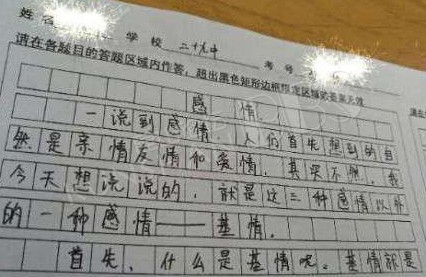 姓名 学校 二十九中 考号
请在各题目的答题区域内作答，超出黑色矩形边框限定区域的答案无效
感 情
一说到感情，人们首先想到的自
然是亲情友情和爱情。其实不然。我
今天想说说的，就是这三种感情以外
的一种感情——基情。
首先，什么是基情呢。基情就是